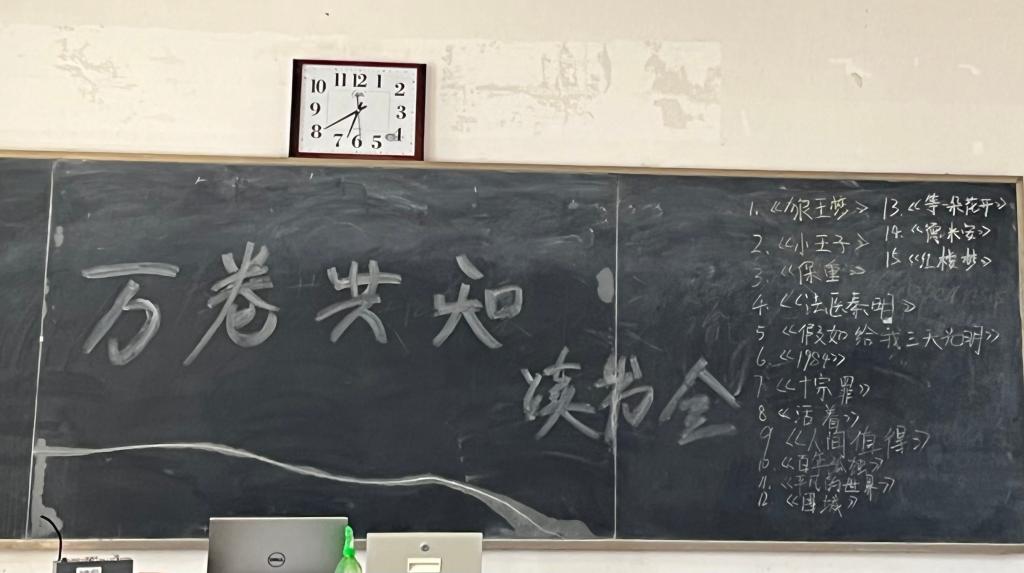 10 11 12 1 2
9 3
8 7 6 5 4
万卷共知
读书会
1. 《狼王梦》
2. 《小王子》
3. 《保重》
4 《法医秦明》
5 《假如给我三天光明》
6. 《1984》
7 《十宗罪》
8 《活着》
9 《人间值得》
10. 《百年孤独》
11. 《平凡的世界》
12 《围城》
13. 《等一朵花开》
14. 《傅来安》
15. 《红楼梦》
DELL